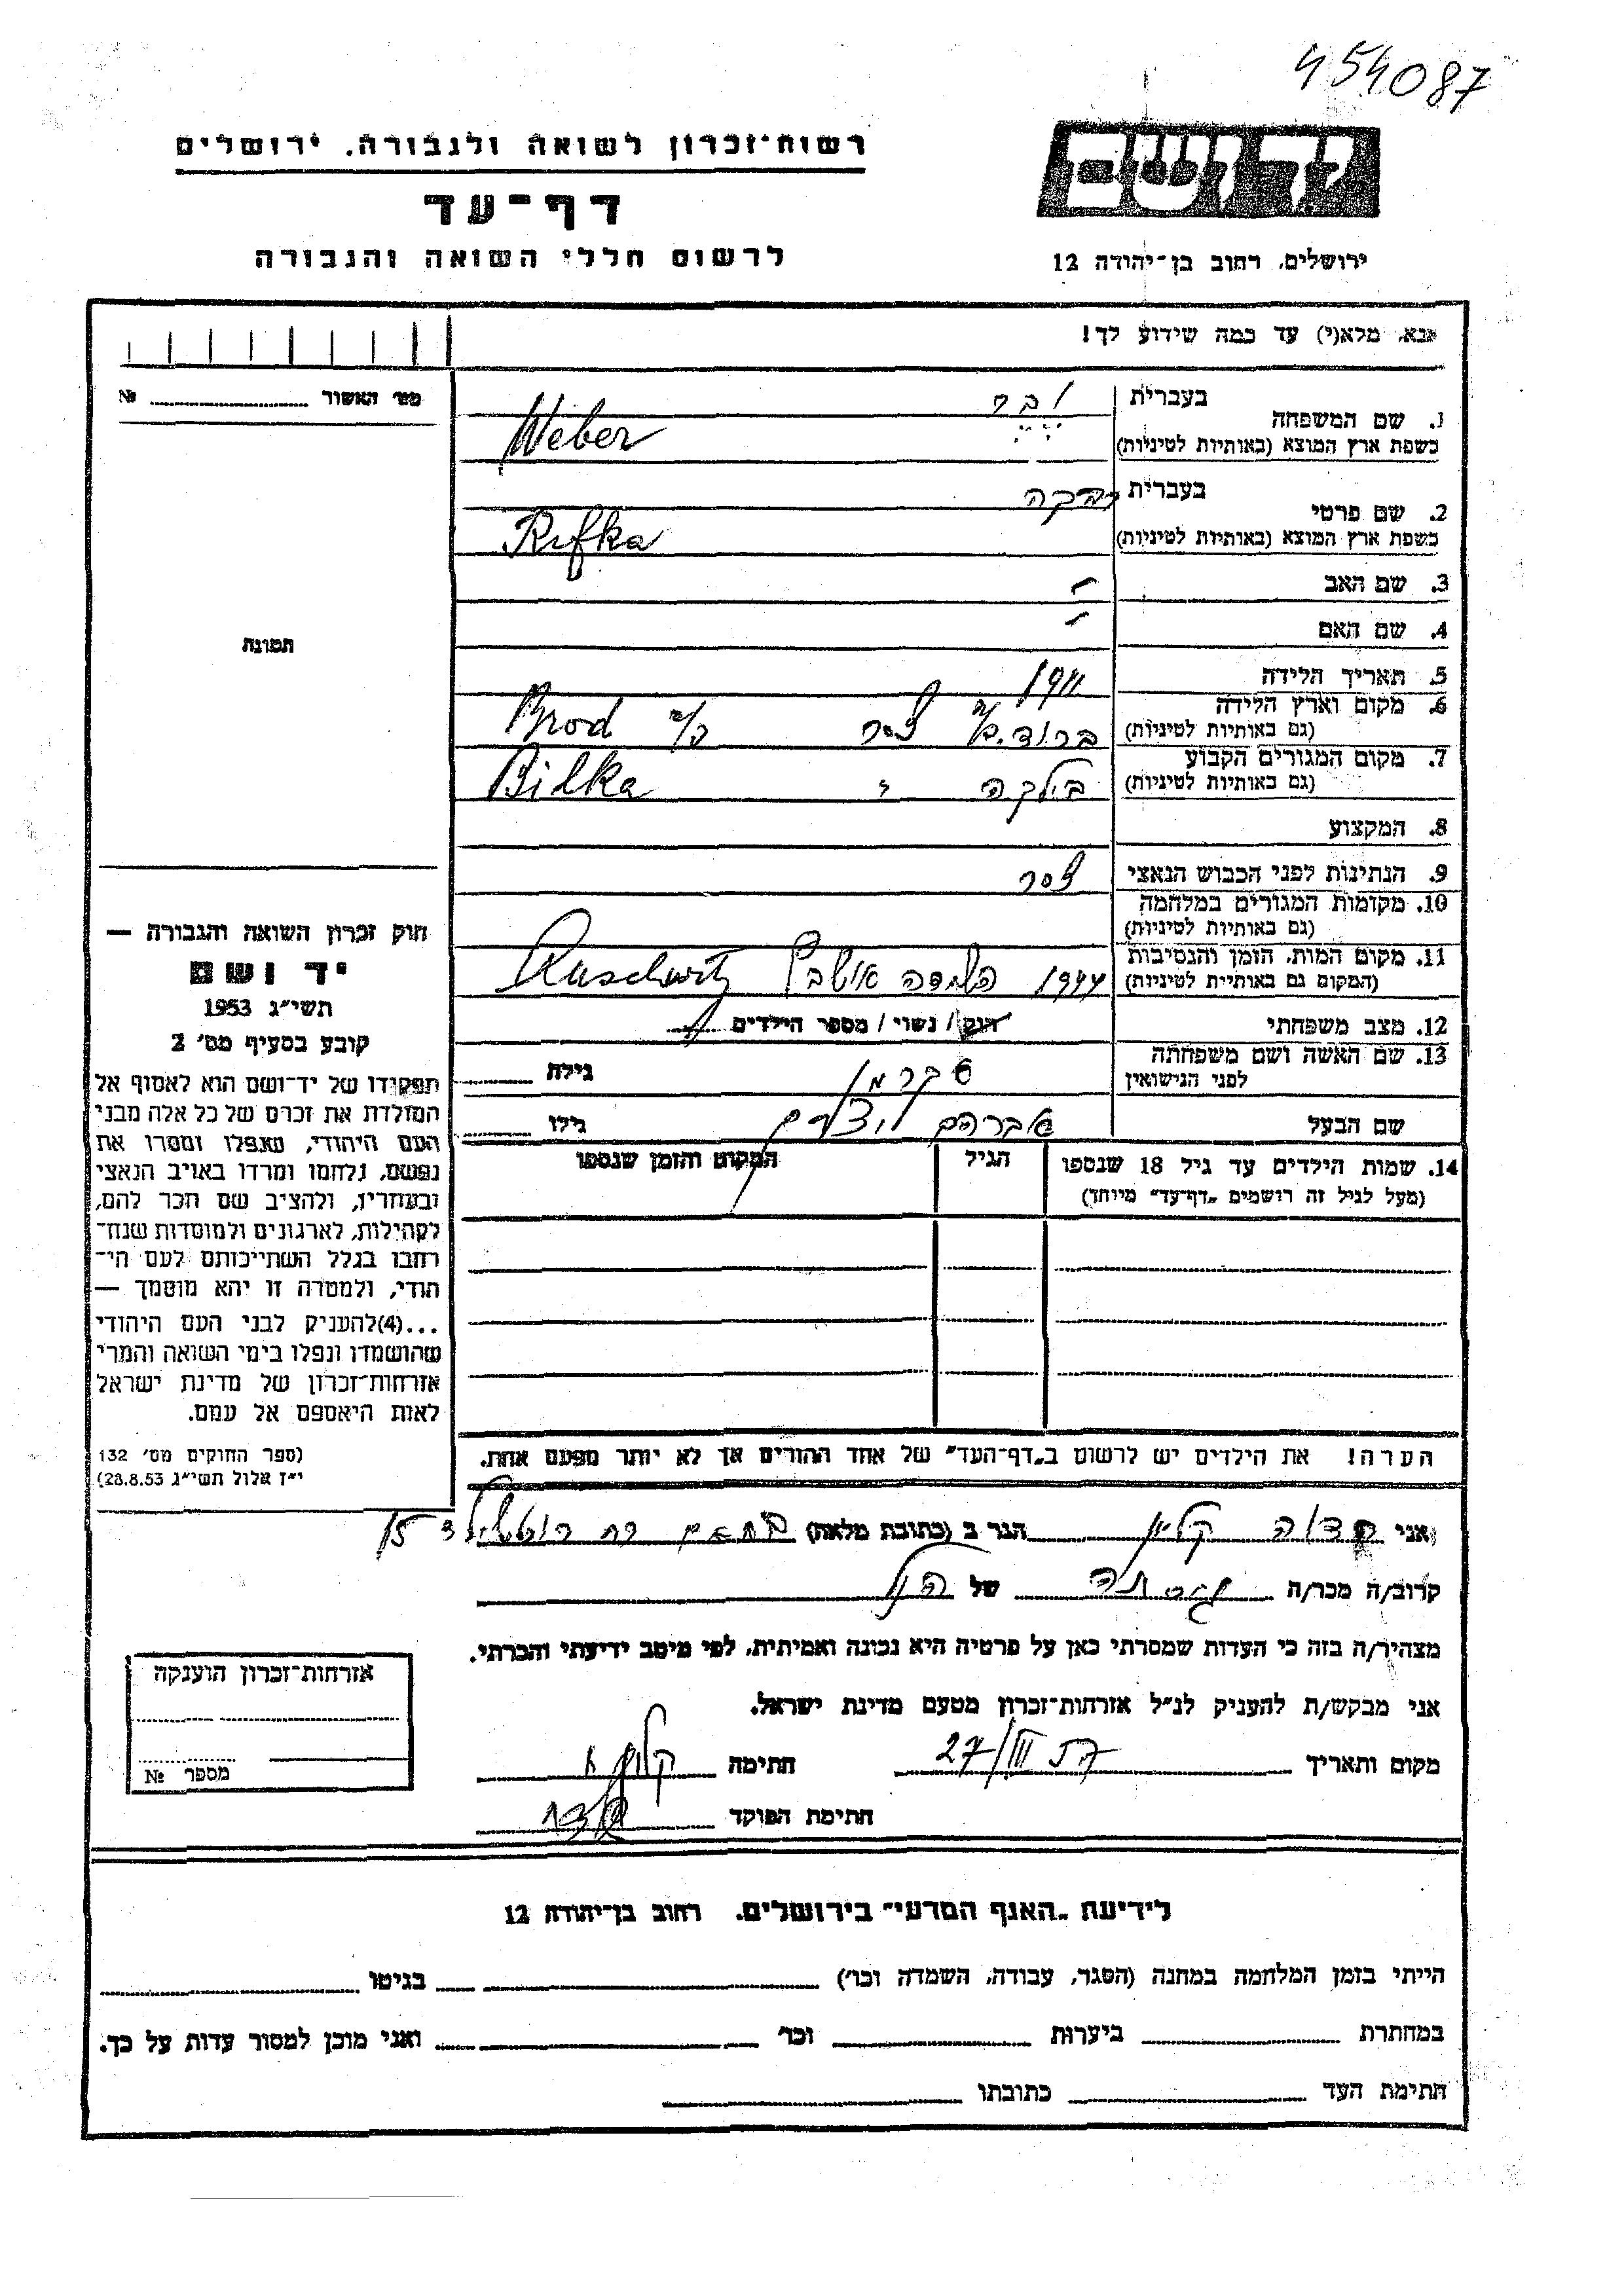 454087
רשות־זכרון לשואה ולגבורה. ירושלים
ידושם
דף־עד
לרשום חללי השואה והגבורה
ירושלים. רחוב בן־יהודה 12
נא, מלא(י) עד כמה שידוע לך!
מס' האשור № 
1. שם המשפחה
בעברית
ובר
כשפת ארץ המוצא (באותיות לטיניות)
Weber
2. שם פרטי
בעברית
רבקה
כשפת ארץ המוצא (באותיות לטיניות)
Rifka
3. שם האב -
4. שם האם -
תמונה
5. תאריך הלידה 1911
6. מקום וארץ הלידה
(גם באותיות לטיניות)
ברוד. Brod
7. מקום המגורים הקבוע
(גם באותיות לטיניות)
בילקה " Bilka
8. המקצוע
9. הנתינות לפני הכבוש הנאצי
10. מקומות המגורים במלחמה
(גם באותיות לטיניות)
11. מקום המות. הזמן והנסיבות
(המקום גם באותיית לטיניות)
1944 השמדה Auschwitz
12. מצב משפחתי רווק / נשוי / מספר הילדים
13. שם האשה ושם משפחתה
לפני הנישואין
גילה
שם הבעל אברהם
גילו
14. שמות הילדים עד גיל 18 שנספו
(מעל לגיל זה רושמים „דף־עד" מיוחד)
הגיל
המקום והזמן שנספו
חוק זכרון השואה והגבורה —
יד ושם
תשי״ג 1953
קובע בסעיף מס' 2
תפקידו של יד־ושם הוא לאסוף אל
המולדת את זכרם של כל אלה מבני
העם היהודי, שנפלו ומסרו את
נפשם, נלחמו ומרדו באויב הנאצי
ובעוזריו, ולהציב שם וזכר להם,
לקהילות, לארגונים ולמוסדות שנח־
רחבו בגלל השתייכותם לעם הי־
הודי, ולמטרה זו יהא מוסמך —
...(4)להעניק לבני העם היהודי
שהושמדו ונפלו בימי השואה והמרי
אזרחות־זכרון של מדינת ישראל
לאות היאספם אל עמם.
(ספר החוקים מס' 132
י״ז אלול תשי״ג 28.8.53)
הערה! את הילדים יש לרשום ב„דף־העד" של אחד ההורים אך לא יותר מפעם אחת.
אני קליין הגר ב (כתובת מלאה) 15
קרוב/ה מכר/ה של הנ"ל
מצהיר/ה בזה כי העדות שמסרתי כאן על פרטיה היא נכונה ואמיתית, לפי מיטב ידיעתי והכרתי.
אני מבקש/ת להעניק לנ״ל אזרחות־זכרון מטעם מדינת ישראל.
מקום ותאריך 27/III חתימה
חתימת הפוקד
אזרחות־זכרון הוענקה
מספר №
לידיעת „האגף המדעי" בירושלים. רחוב בן־יהודה 12
הייתי בזמן המלחמה במחנה (הסגר, עבודה, השמדה וכו') בגיטו
במחתרת ביערות וכו' ואני מוכן למסור עדות על כך.
חתימת העד כתובתו